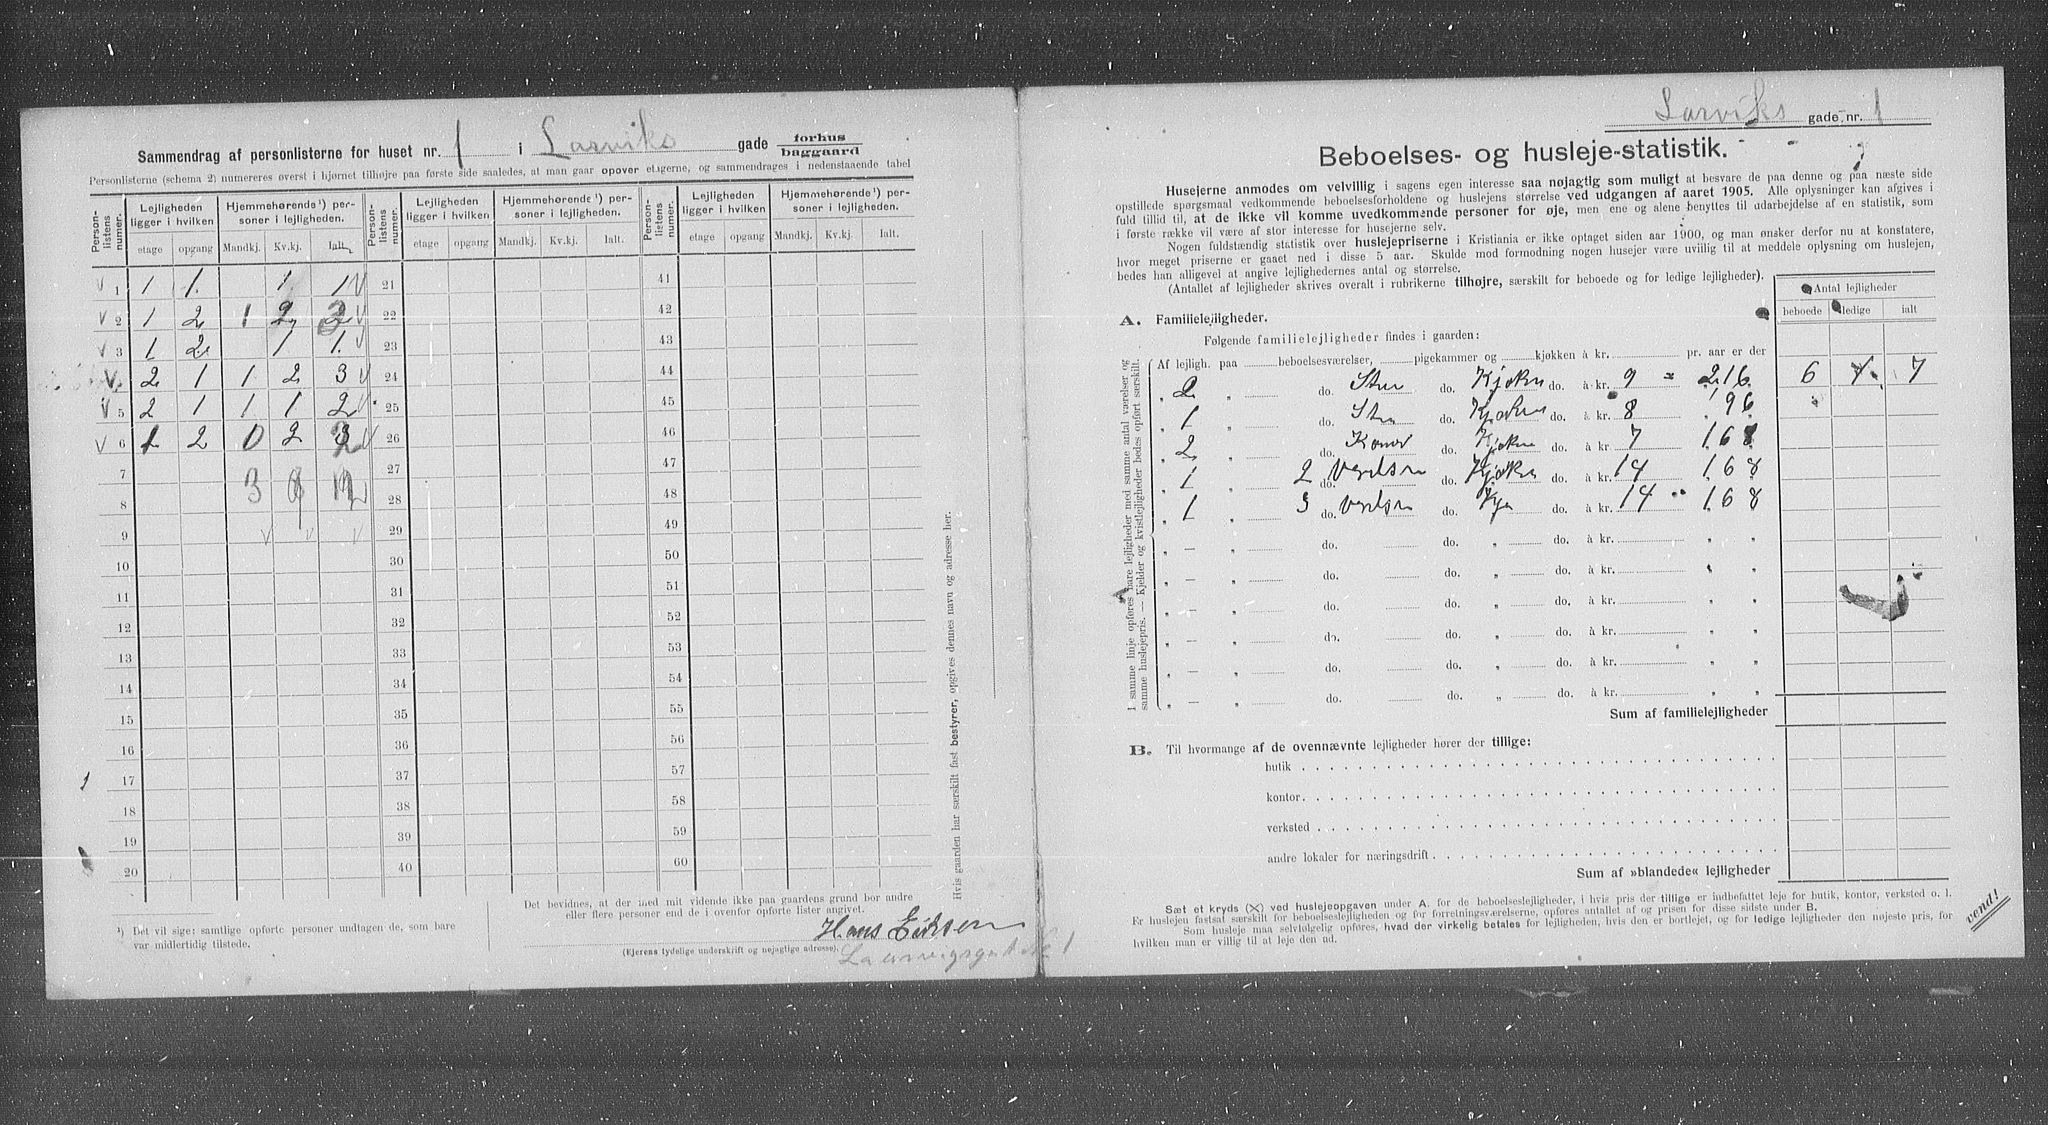 Sammendrag af personlisterne for huset nr. 1 i Larviks gade forhus
baggaard
Personlisterne (schema 2) numereres øverst i hjørnet tilhøjre paa første side saaledes, at man gaar opover etagerne, og sammendrages i nedenstaaende tabel
Person-listens numer. Lejligheden ligger i hvilken Hjemmehørende¹) personer i lejligheden. Person-listens numer. Lejligheden ligger i hvilken Hjemmehørende¹) personer i lejligheden. Person-listens numer. Lejligheden ligger i hvilken Hjemmehørende¹) personer i lejligheden.
etage opgang Mandkj. Kv.kj. Ialt. etage opgang Mandkj. Kv.kj. Ialt. etage opgang Mandkj. Kv.kj. Ialt.
√ 1 1 1. 1 1 √ 21 41
√ 2 1 2 1 2 3 22 42
√ 3 1 2 1 1. 23 43
√ 2 1 1 2 3 √ 24 44
√ 5 2 1 1 1 2 25 45
√ 6 1 2 0 2 √ 26 46
7 3 27 47
8 28 48
9 29 49
10 30 50
11 31 51
12 32 52
13 33 53
14 34 54
15 35 55
16 36 56
17 37 57
18 38 58
19 39 59
20 40 60
¹) Det vil sige: samtlige opførte personer undtagen de, som bare
var midlertidig tilstede.
Det bevidnes, at der med mit vidende ikke paa gaardens grund bor andre
eller flere personer end de i ovenfor opførte lister angivet.
Hans Eriksen
(Ejerens tydelige underskrift og nejagtige adresse).
1
Hvis gaarden har særskilt fast bestyrer, opgives dennes navn og adresse her.
Larviks gade nr. 1
Beboelses- og husleje-statistik.
Husejerne anmodes om velvillig i sagens egen interesse saa nøjagtig som muligt at besvare de paa denne og paa næste side
opstillede spørgsmaal vedkommende beboelsesforholdene og huslejens størrelse ved udgangen af aaret 1905. Alle oplysninger kan afgives i
fuld tillid til, at de ikke vil komme uvedkommende personer for øje, men ene og alene benyttes til udarbejdelse af en statistik, som
i første række vil være af stor interesse for husejerne selv.
Nogen fuldstændig statistik over huslejepriserne i Kristiania er ikke optaget siden aar 1900, og man ønsker derfor nu at konstatere,
hvor meget priserne er gaaet ned i disse 5 aar. Skulde mod formodning nogen husejer være uvillig til at meddele oplysning om huslejen,
bedes han alligevel at angive lejlighedernes antal og størrelse.
(Antallet af lejligheder skrives overalt i rubrikerne tilhøjre, særskilt for beboede og for ledige lejligheder).
Antal lejligheder
beboede ledige ialt
A. Familielejligheder.
Følgende familielejligheder findes i gaarden:
Af lejligh. paa beboelsesværelser, pigekammer og kjøkken à kr. pr. aar er der
„ 2 „ do. Stue do. Kjøken do. à kr. 9 = 216 6 7
„ 1 „ do. Stue do. Kjøken do. à kr. 8 96
„ 2 „ do. do. Kjøken do. à kr. 7 168
„ 1 „ 2 do. do. Kjøken do. à kr. 14 168
„ 1 „ do. do. Kjø do. à kr. 14 „ 168
„ — „ do. do. „ do. à kr. „ „
„ — „ do. do. „ do. à kr. „ „
„ — „ do. do. „ do. à kr. „ „
„ — „ do. do. „ do. à kr. „ „
„ — „ do. do. „ do. à kr. „ „
„ — „ do. do. „ do. à kr. „ „
I samme linje opføres bare lejligheder med samme antal værelser og
samme huslejepris. — Kjelder og kvistlejligheder bedes opført særskilt.
Sum af familielejligheder
B. Til hvormange af de ovennævnte lejligheder hører der tillige:
butik
kontor
verksted
andre lokaler for næringsdrift
Sum af »blandede« lejligheder
Sæt et kryds (X) ved huslejeopgaven under A. for de beboelseslejligheder, i hvis pris der tillige er indbefattet leje for butik, kontor, verksted o. l.
Er huslejen fastsat særskilt for beboelseslejligheden og for forretningsværelserne, opføres antallet af og prisen for disse sidste under B.
Som husleje maa selvfølgelig opføres, hvad der virkelig betales for lejligheden, hvis den er bortlejet, og for ledige lejligheder den nøjeste pris, for
hvilken man er villig til at leje den ud.
vend!